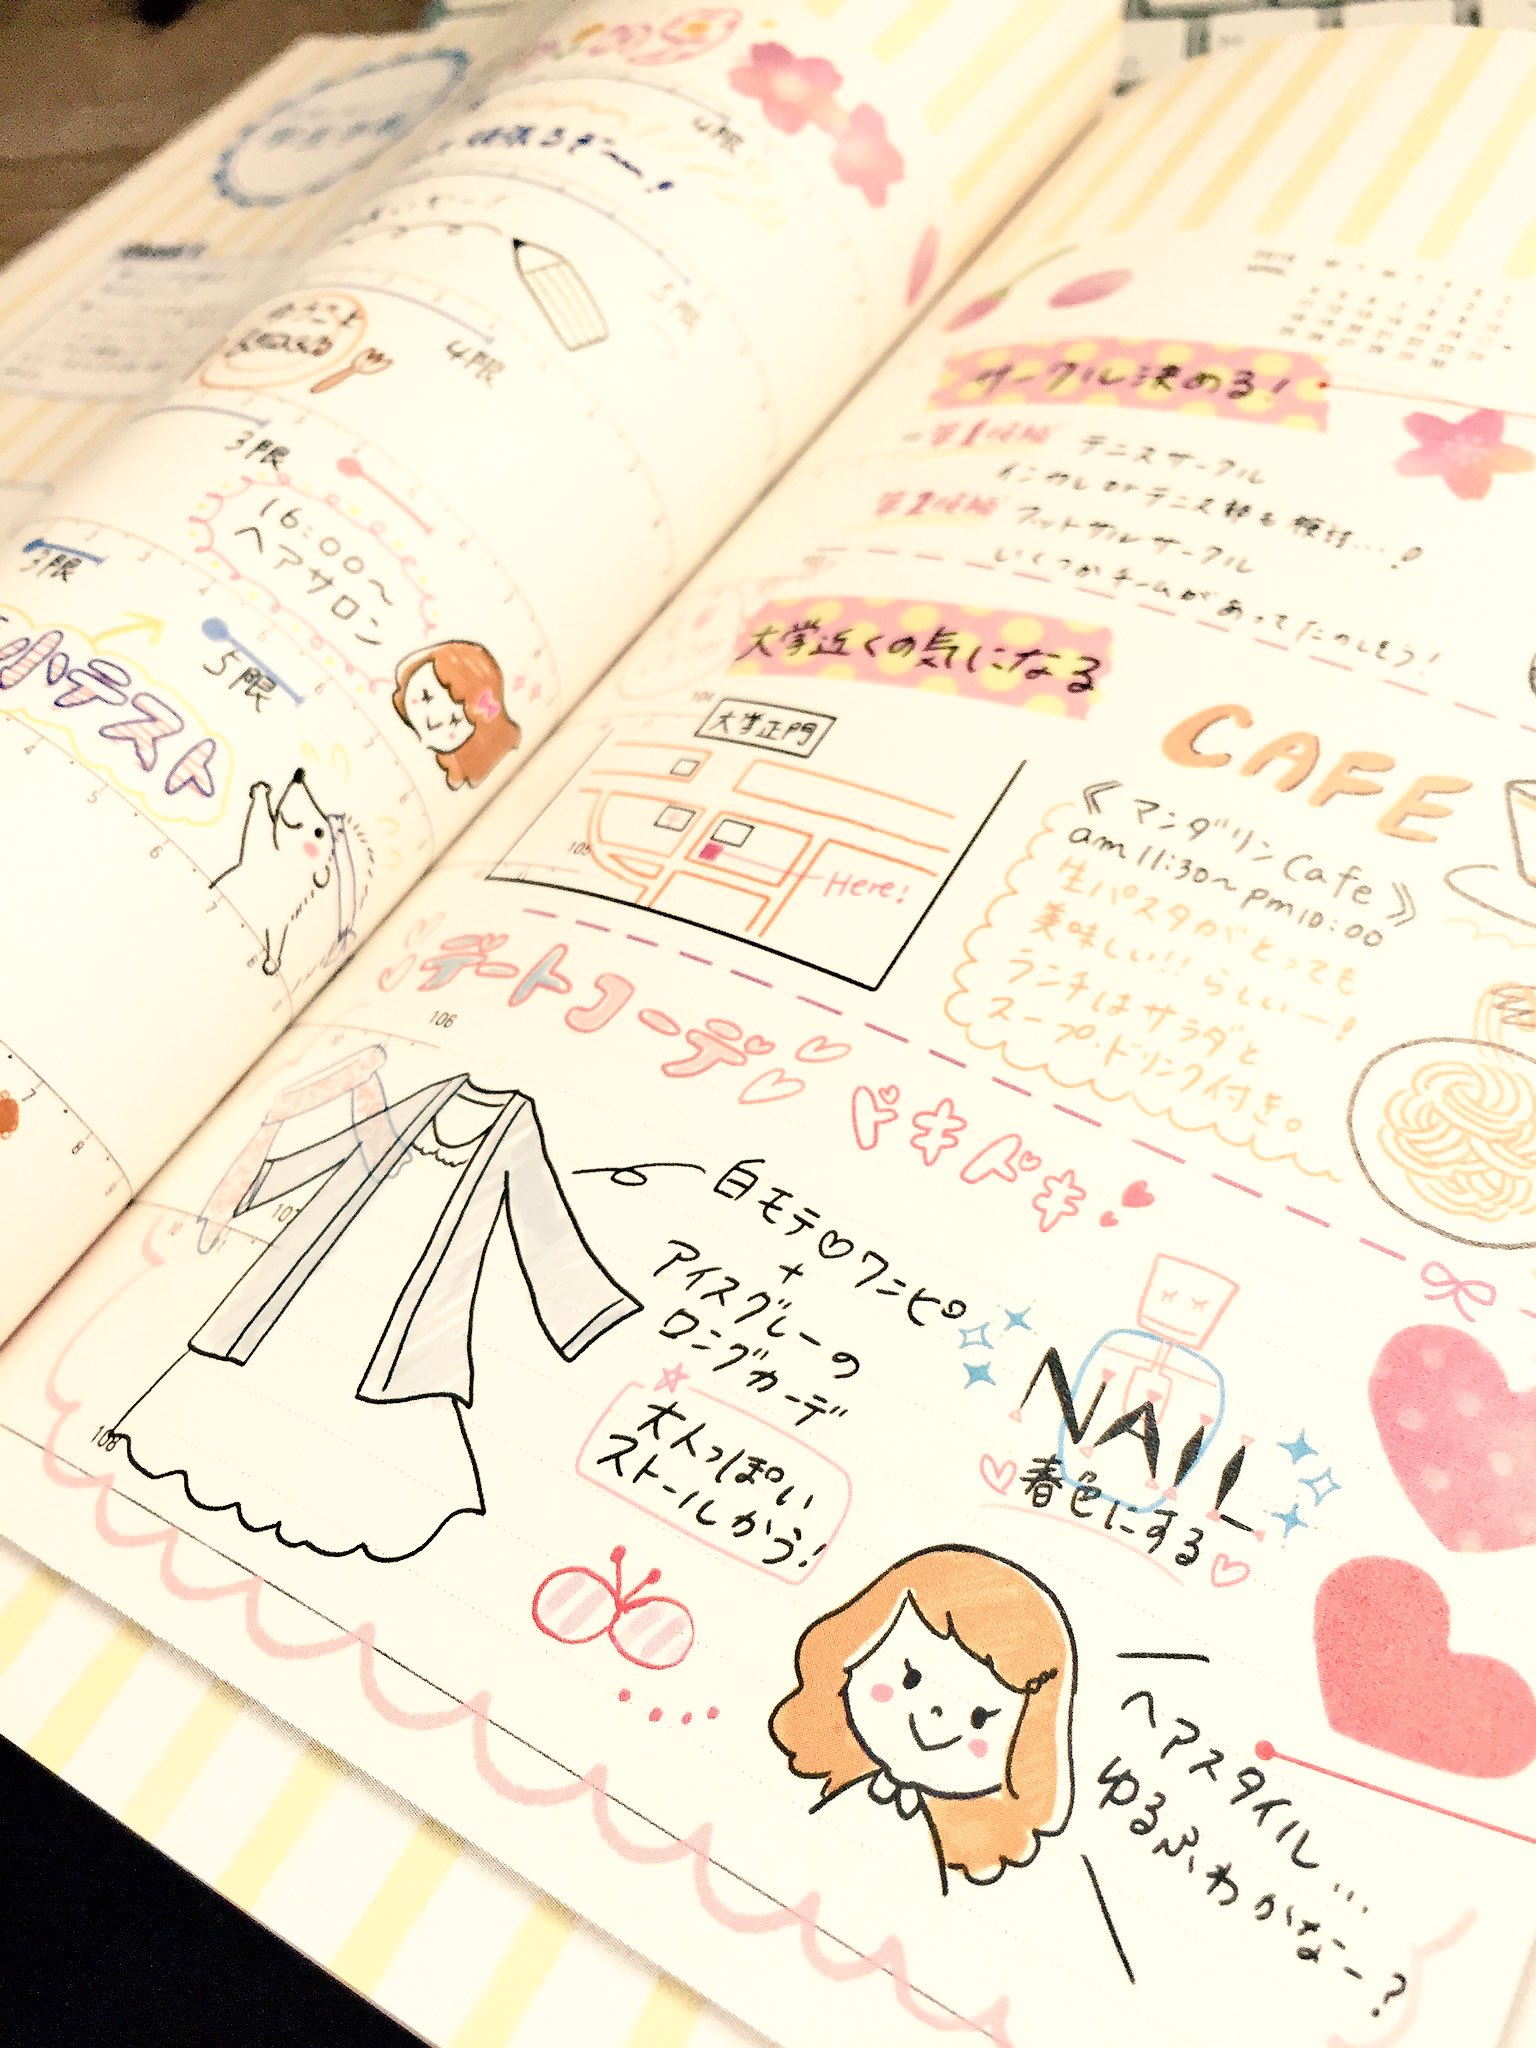 4限
4限
3限
16:00〜
ヘアサロン
3限
5限
小テスト
サークル決める!
テニスサークル
フットサルサークル
いくつかチームがあってたのしそう!
大学近くの気になる
CAFE
大学正門
Here!
《マンダリンCafe》
am11:30〜pm10:00
生パスタがとっても
美味しい!!らしいー!
ランチはサラダと
スープ・ドリンク付き。
105
106
107
108
デートコーデ
ドキドキ
白モテ♡ワンピ
+
アイスグレーの
ロングカーデ
大人っぽい
ストールかう!
NAIL
春色にする
ヘアスタイル…
ゆるふわかなー?